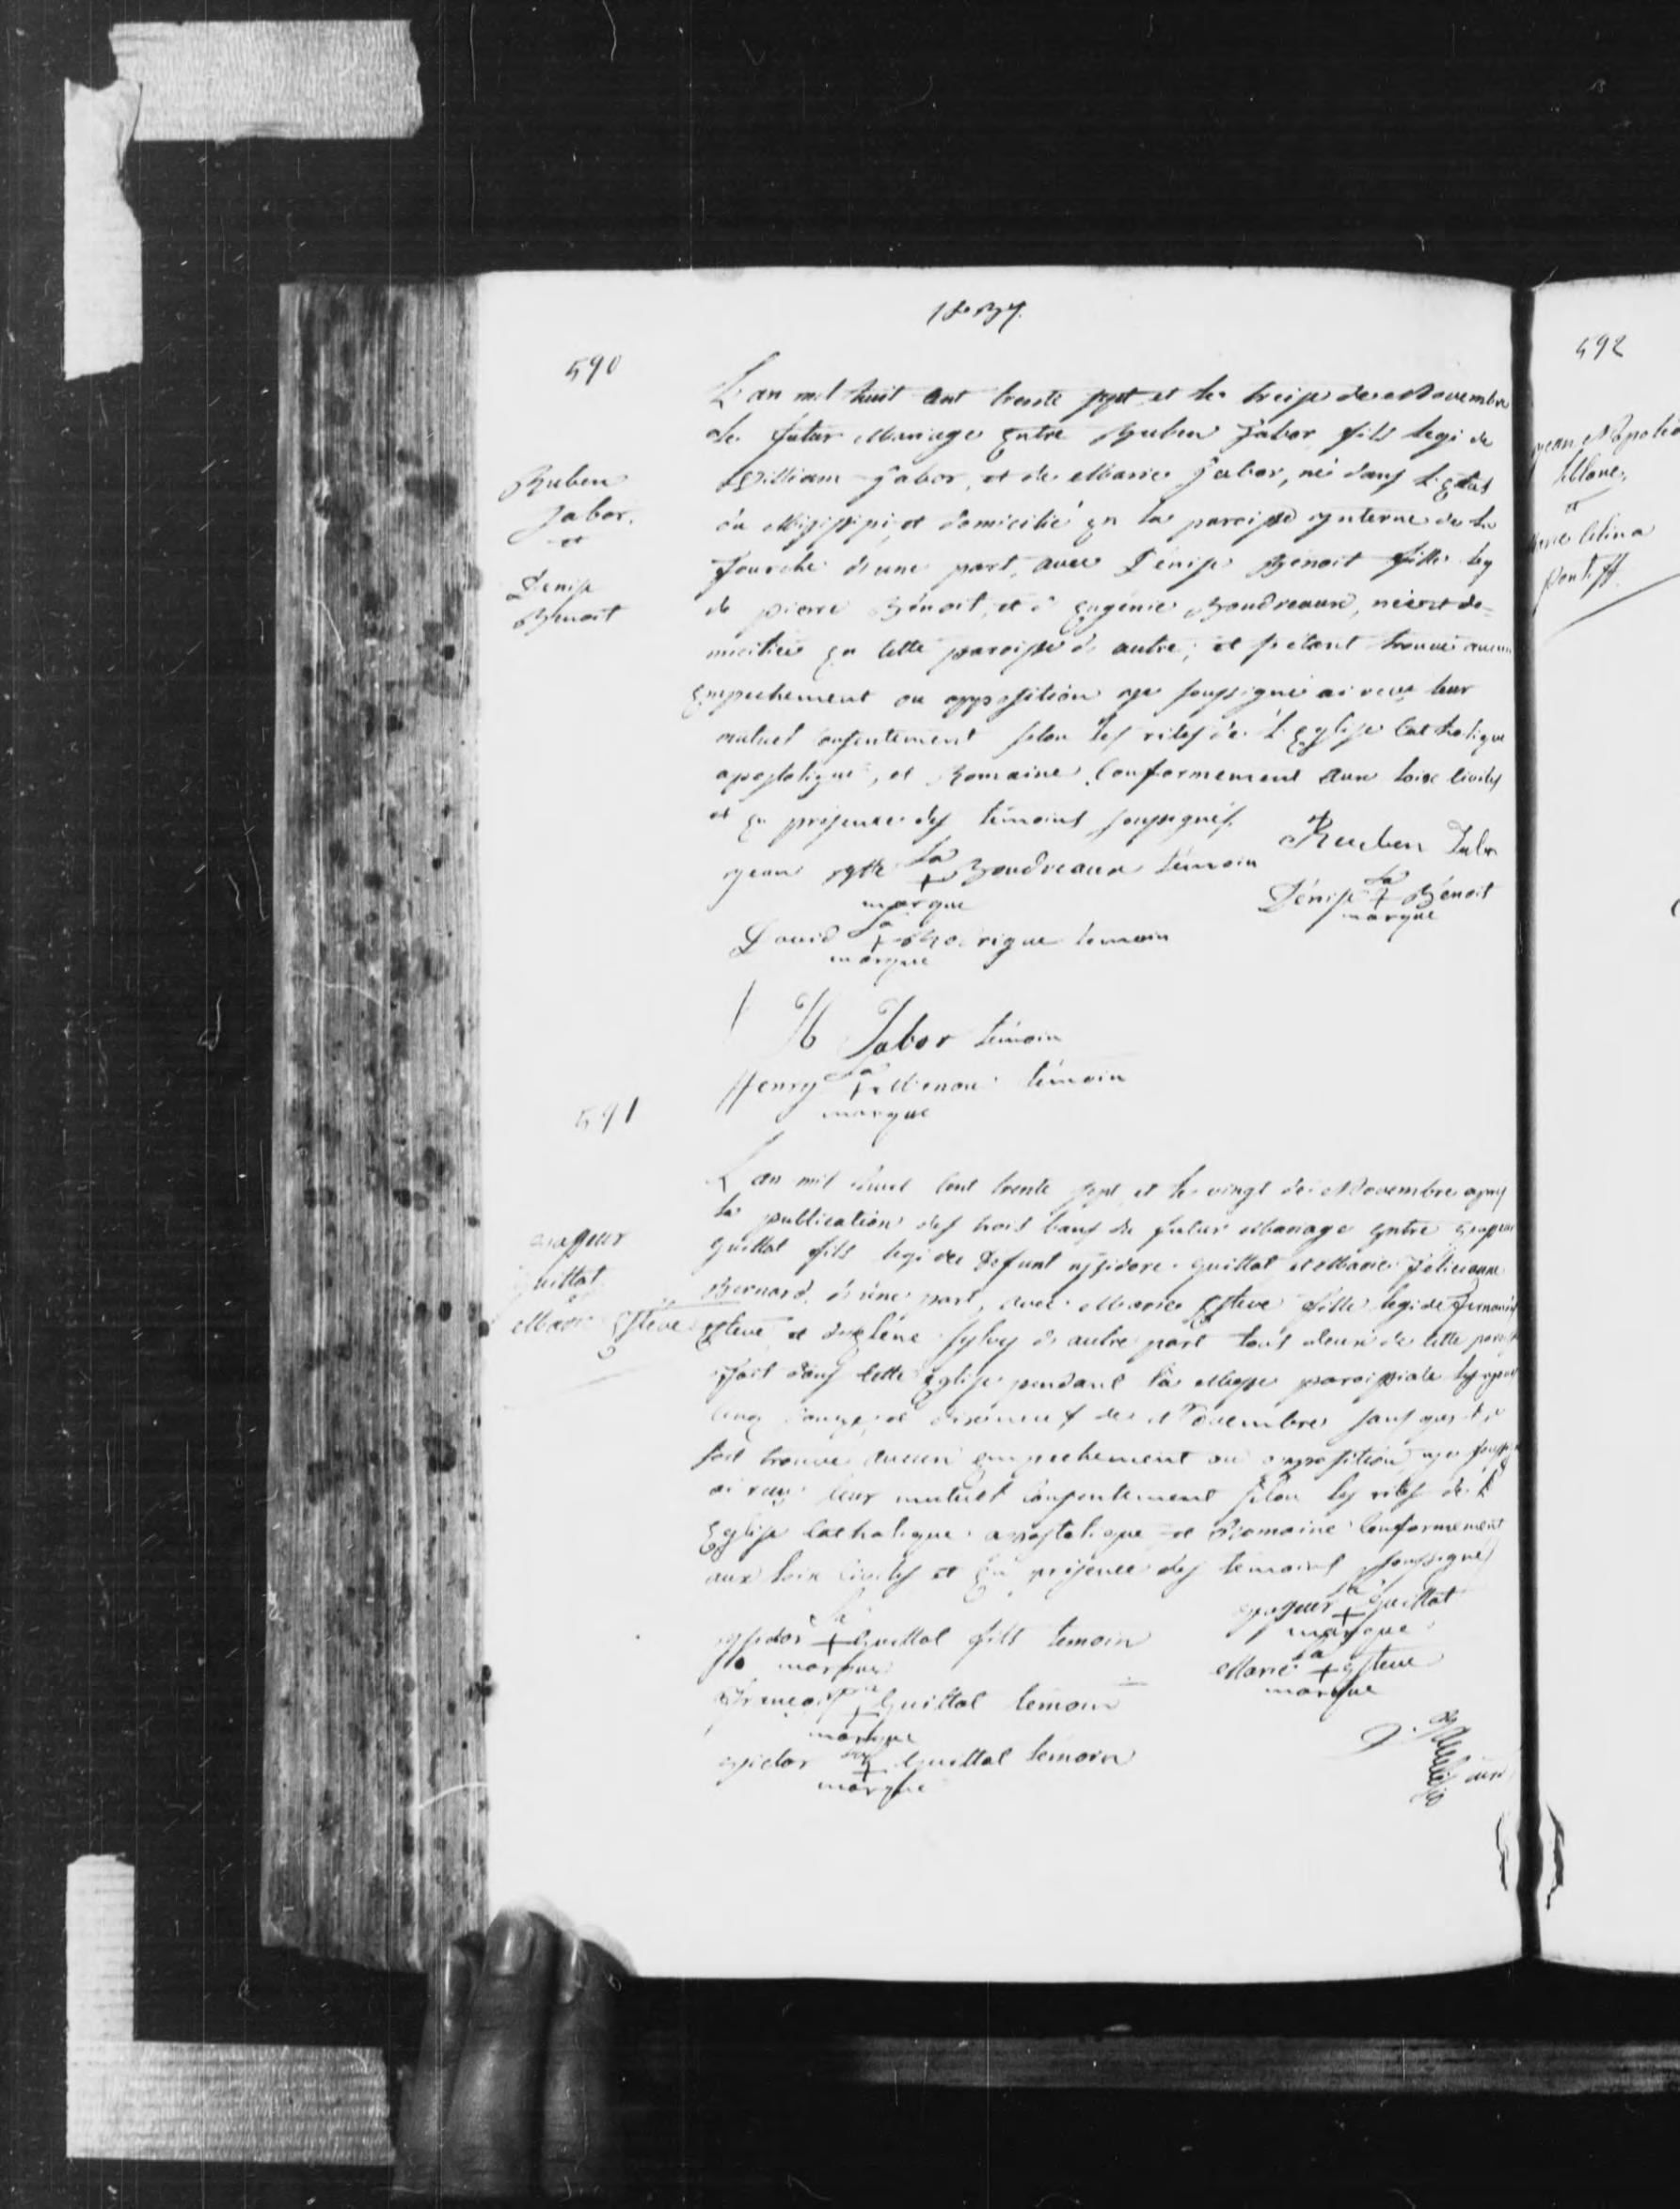 1837.
590
Ruben
Jabor.
et
Dénise
Benoit
L'an mil huit cent trente sept et le treize de Novembre
de futur Mariage Entre Ruben Jabor fils legi de
William Jabor, et de Marie Jabor, né dans L'Etat
du Missisipi, et domicilié En la paroisse ynterne de la
fourche d'une part, avec Dénise Benoit fille leg
de pierre Bénoit, et d'Eugénie Boudreaux, née et do=
miciliée En cette paroisse d'autre; et s'étant trouvé aucun
Empechement ou opposition je soussigné ai reçu leur
mutuel consentement selon les rites de L'Eglise Catholique
apostolique, et Romaine Conformement aux loix civiles
et En présence des témoins soussignés.
Reuben Jabor
jean Bte sa + Boudreaux témoin
marque
Dénise sa + Bénoit
marque
David sa + Rodrigue temoin
marque
H Jabor témoin
Henry sa + témoin
marque
591
Guittot
et
Marie Esteve
L'an mil huit cent trente sept et le vingt de Novembre après
la publication des trois bans de futur Mariage Entre
Guillot fils legi de Defunt ysidore Guillot et Marie Félicienne
Bernard d'une part, avec Marie Esteve fille legi de
Esteve et d' autre part tous deux de cette
fait dans cette Eglise pendant la Messe paroissiale
et dixneuf de Novembre sans que
soit trouvé aucun empechement ou opposition je
ai reçu leur mutuel Consentement selon les rites de L'
Eglise Catholique apostolique et Romaine Conformement
aux loix Civiles et En présence des temoins soussignés
sa + Guillot
marque
sa + Guillot fils temoin
marque
Marie sa + Esteve
marque
François sa + Guillot temoin
marque
sa + Guillot temoin
marque
592
jean Napoléo
Leblanc
et
Celina